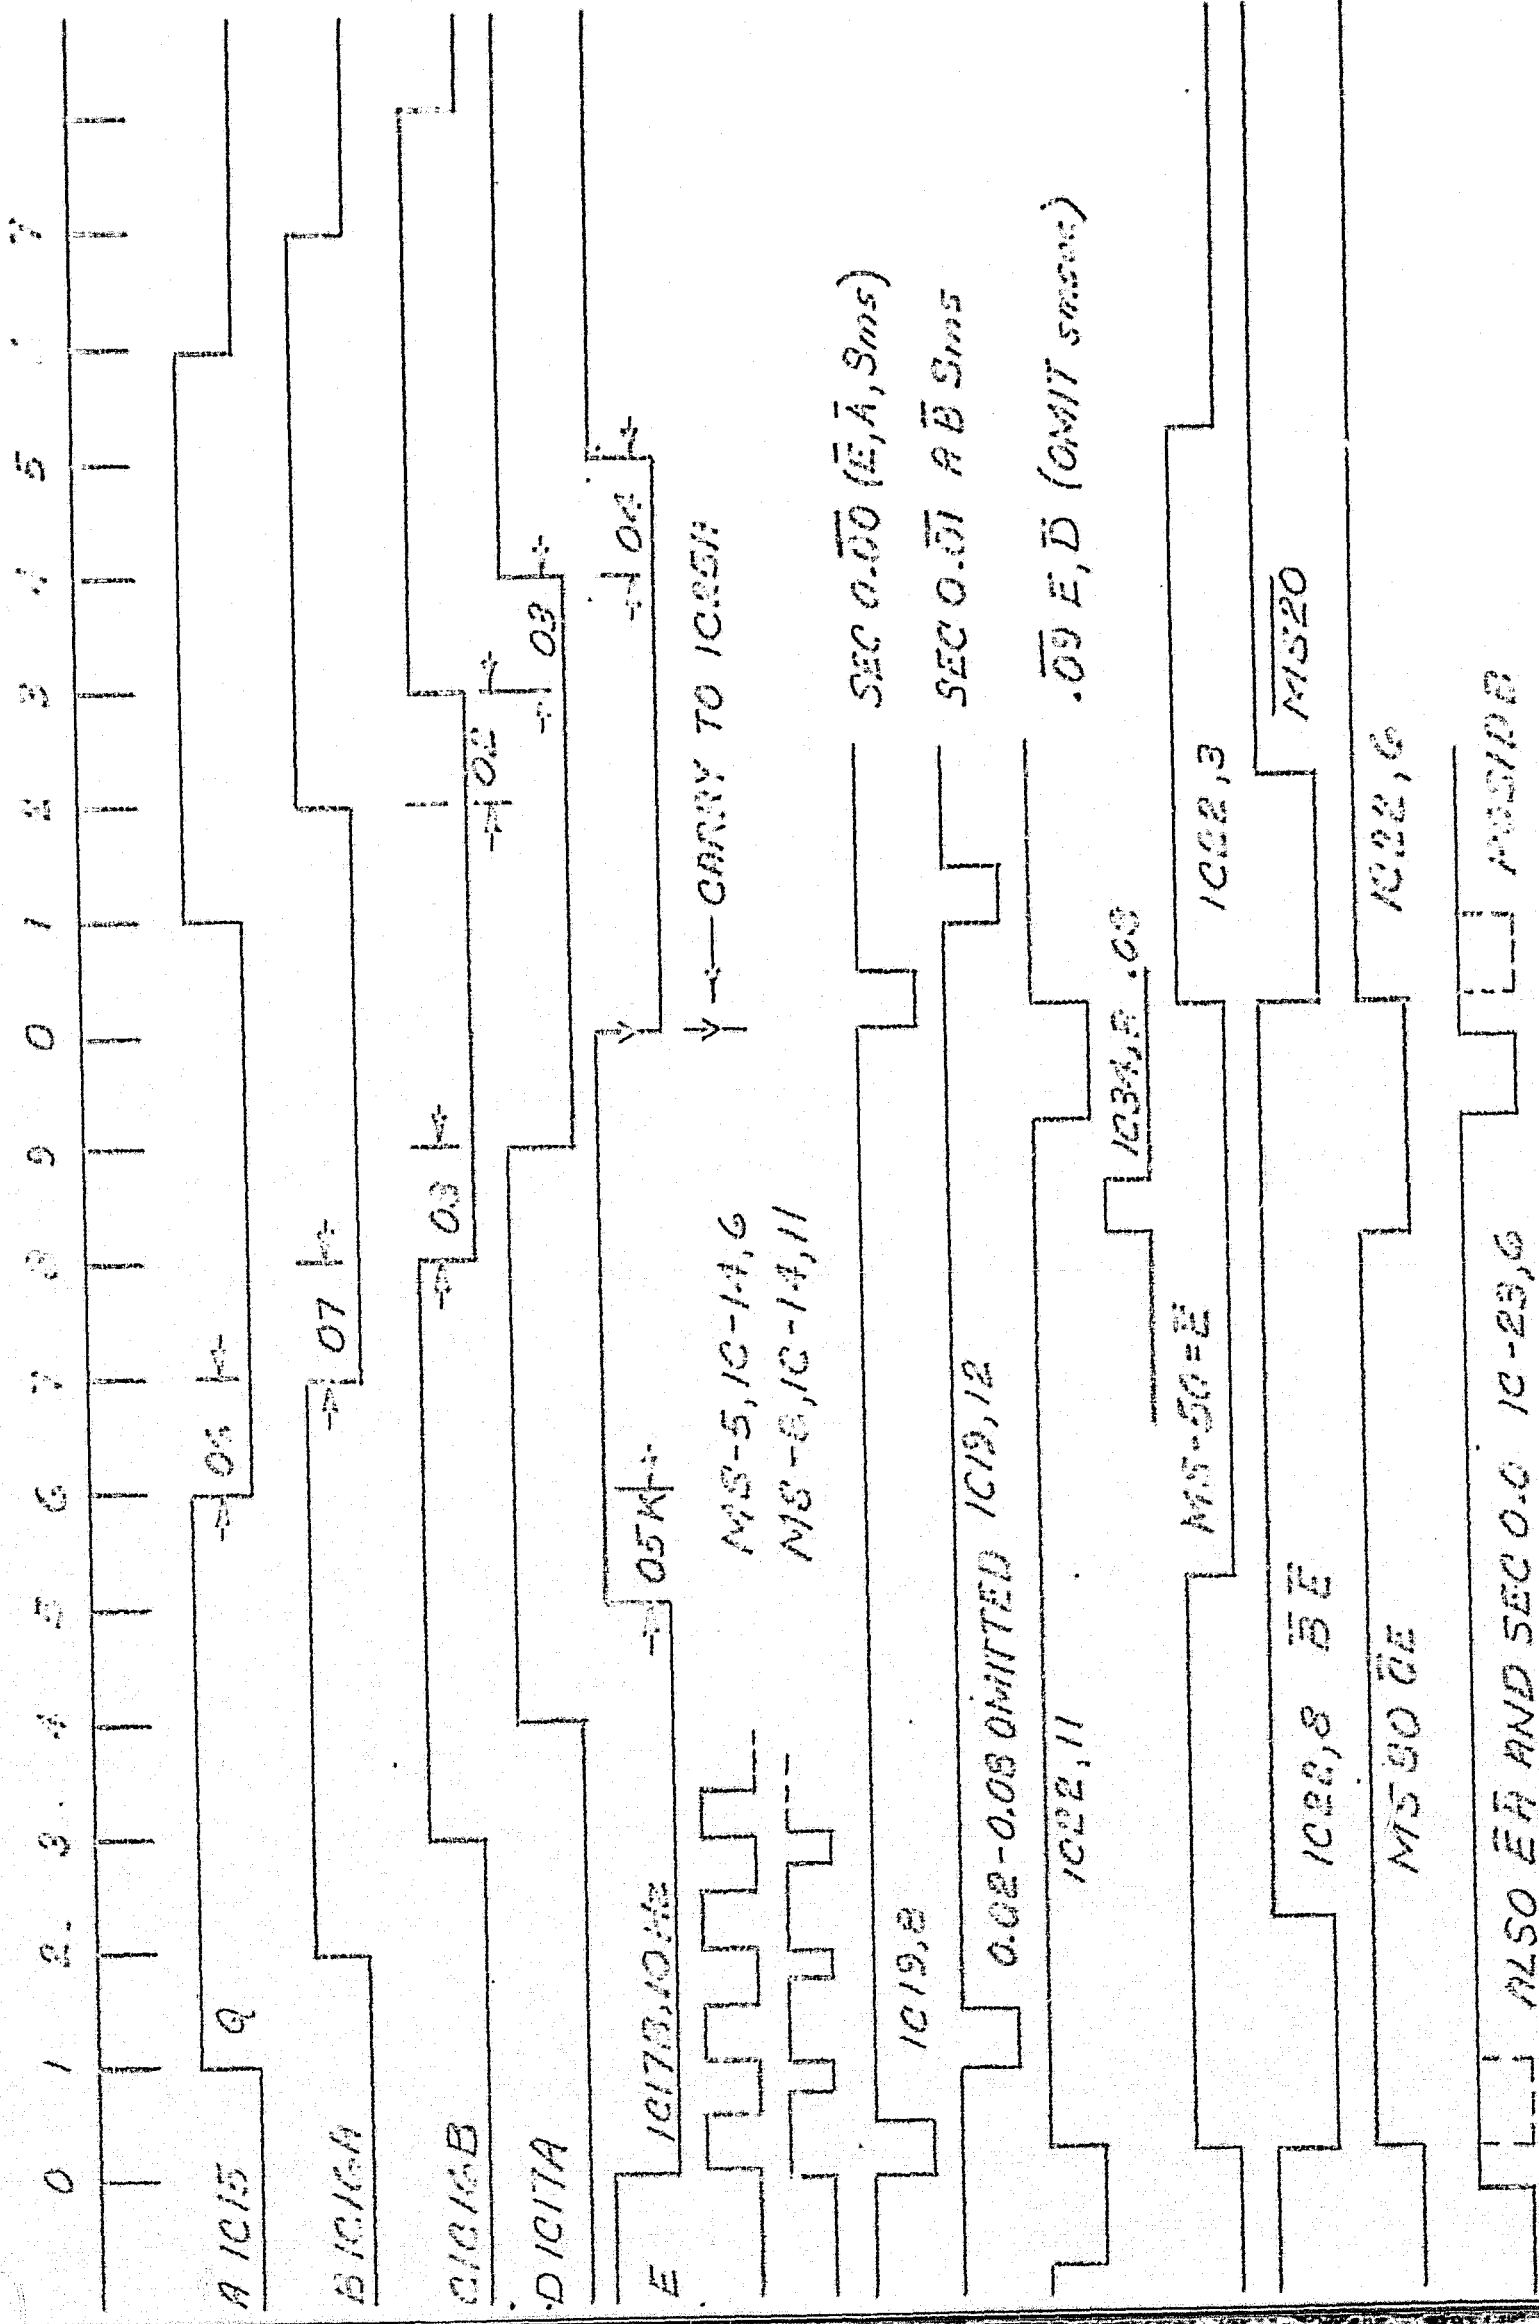 0 1 2 3 4 5 6 7 8 9 0 1 2 3 4 5 7
A IC15 Q 06
B IC16A 07
C IC16B 03 02
D IC17A 03
E IC17B, 10 Hz 05K 04
CARRY TO IC25A
MS-5, IC-14, 6
MS-8, IC-14, 11
IC19, 8 SEC 0.0̅0̅ (E̅, A̅, 8ms)
0.02-0.08 OMITTED IC19, 12 SEC 0.0̅1̅ A B̅ 8ms
IC22, 11 .0̅9̅ E, D̅ (OMIT 5msec)
IC34, .08
MS-50=E̅ IC22, 3
IC22, 8 B̅ E̅ M̅S̅2̅0̅
MS80 C̅E IC22, 6
ALSO E̅A̅ AND SEC 0.0 IC-23, 6 POSIDB